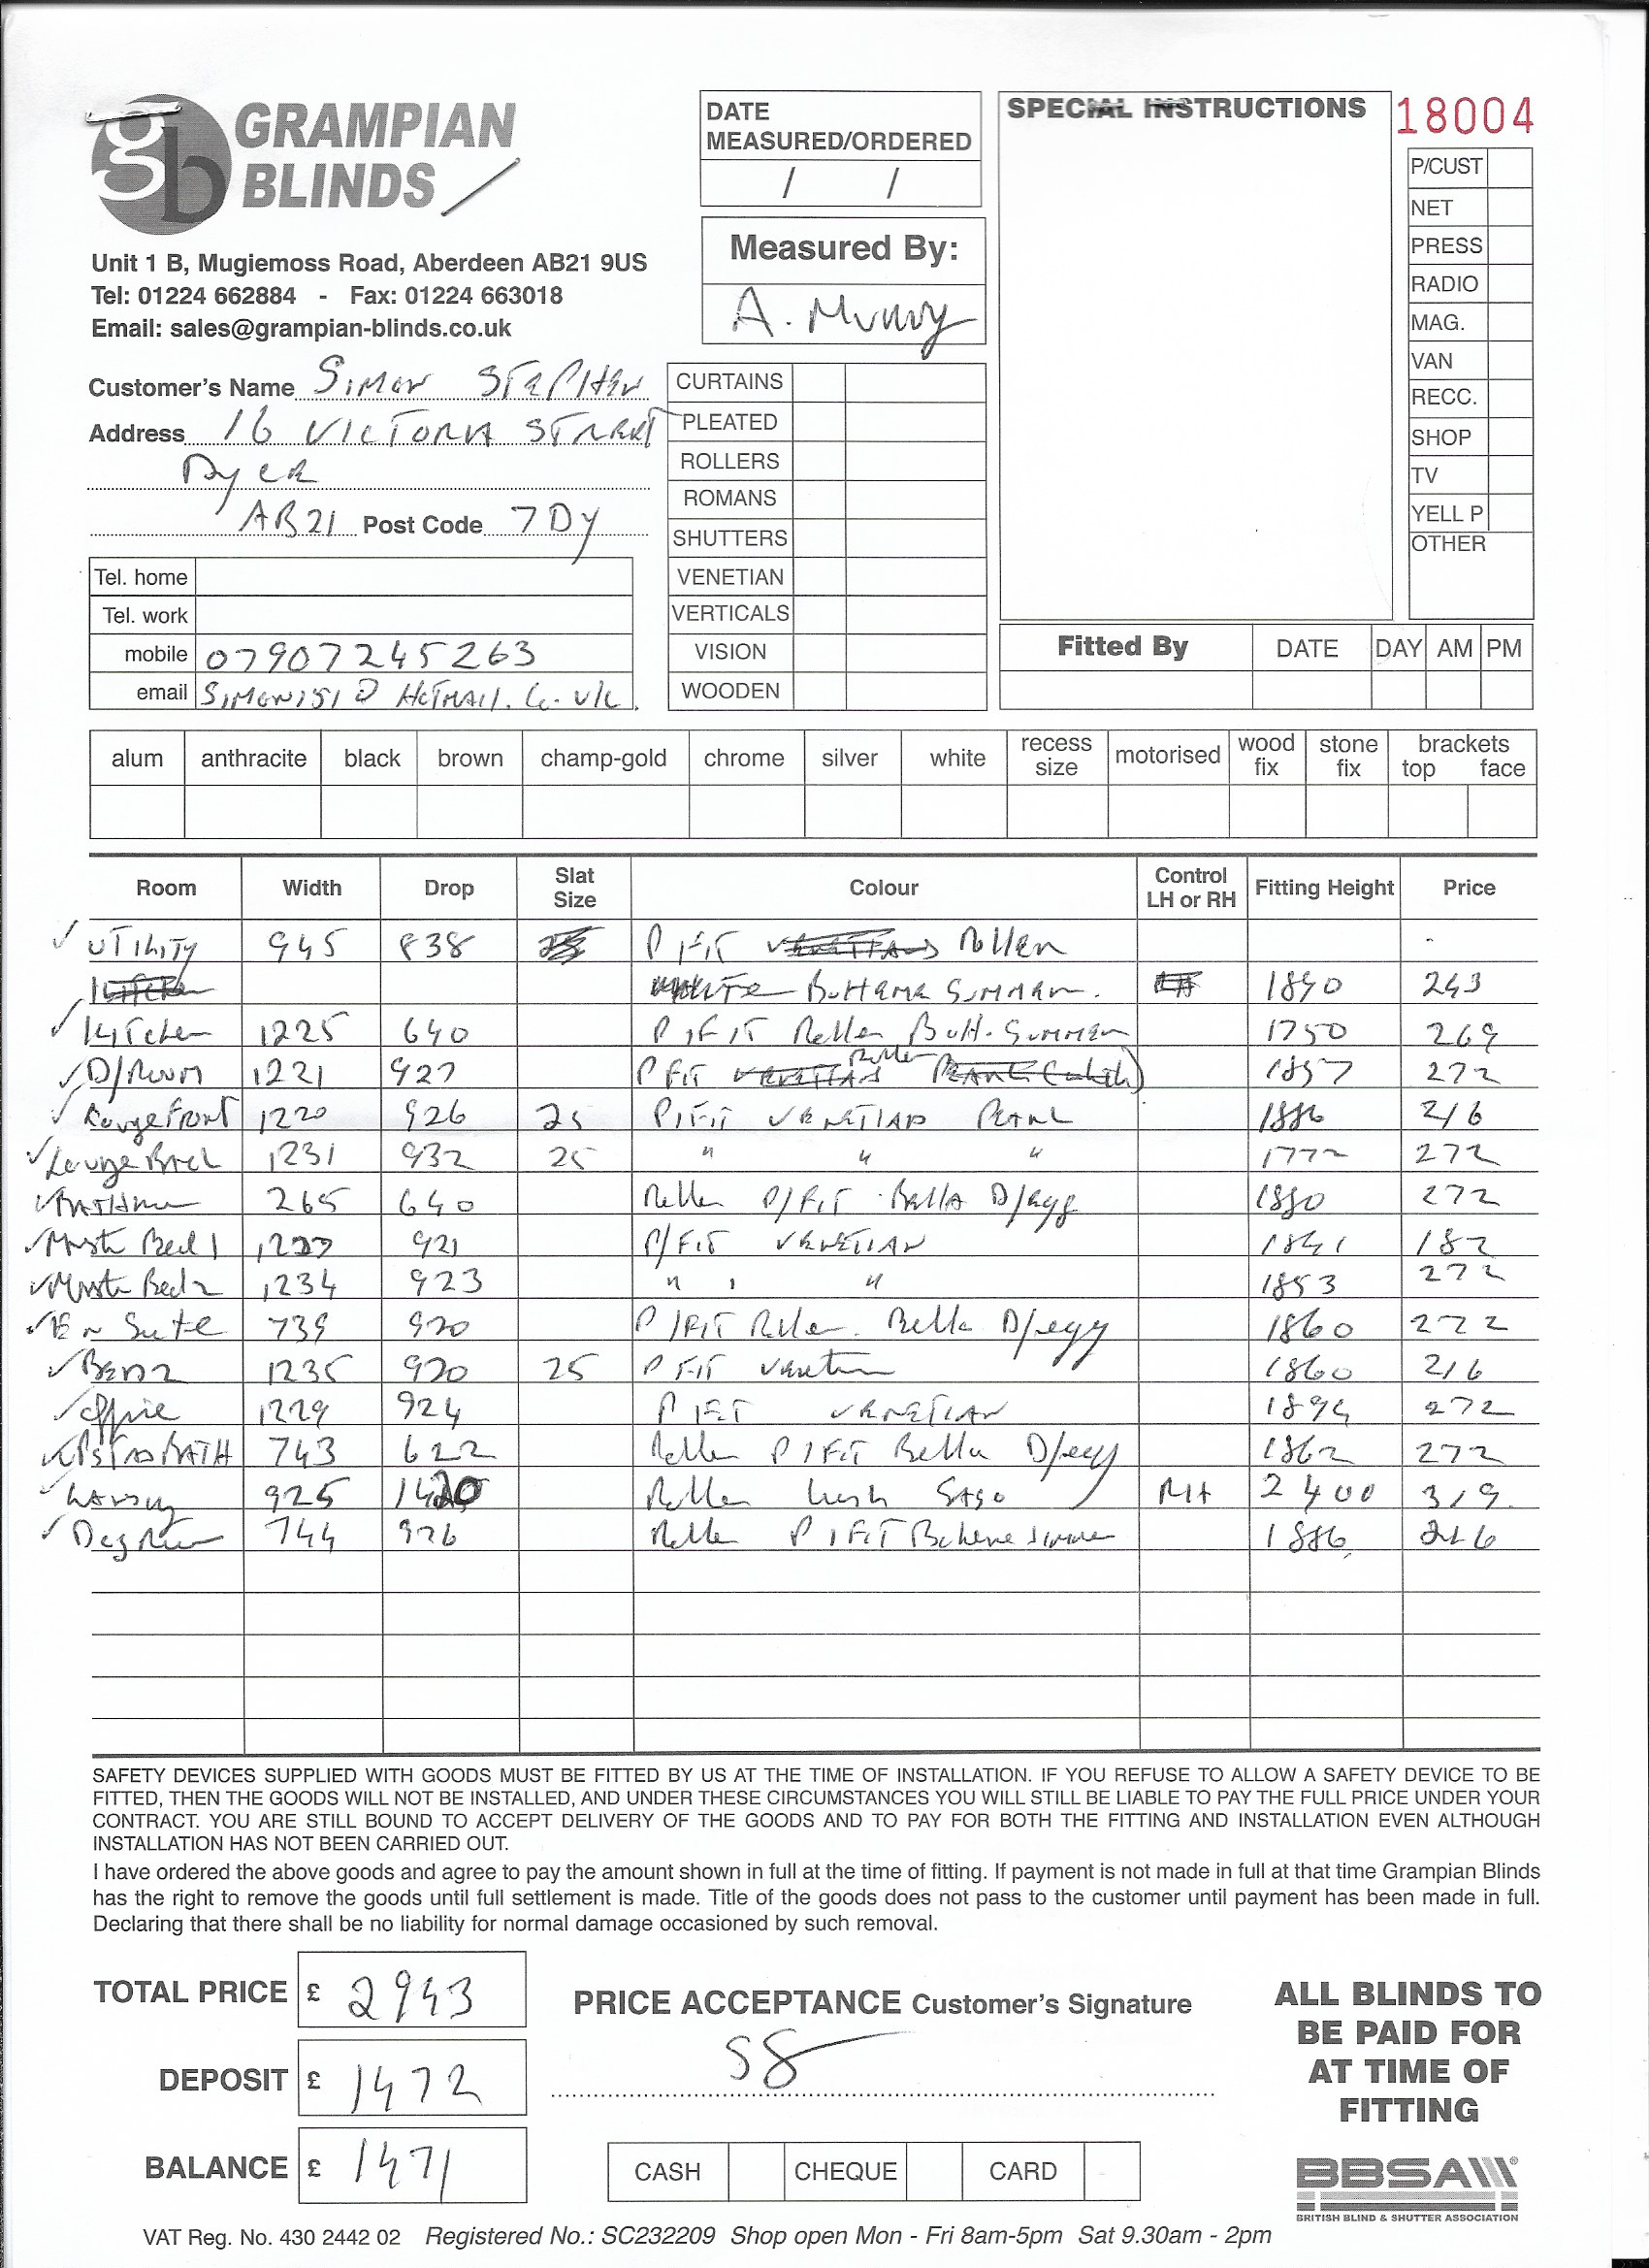 gb GRAMPIAN BLINDS
Unit 1 B, Mugiemoss Road, Aberdeen AB21 9US
Tel: 01224 662884 - Fax: 01224 663018
Email: sales@grampian-blinds.co.uk
DATE MEASURED/ORDERED
/ /
Measured By:
A.
SPECIAL INSTRUCTIONS
18004
P/CUST
NET
PRESS
RADIO
MAG.
VAN
RECC.
SHOP
TV
YELL P
OTHER
Customer's Name SIMON STEPHEN
Address 16 VICTORIA STREET
DYCE
AB21 Post Code 7DY
Tel. home
Tel. work
mobile 07907245263
email SIMON151@HOTMAIL.CO.UK.
CURTAINS
PLEATED
ROLLERS
ROMANS
SHUTTERS
VENETIAN
VERTICALS
VISION
WOODEN
Fitted By DATE DAY AM PM
alum anthracite black brown champ-gold chrome silver white recess size motorised wood fix stone fix brackets top face
Room Width Drop Slat Size Colour Control LH or RH Fitting Height Price
UTILITY 945 838 P FIT Roller
SUMMER. 1890 243
Kitchen 1225 640 P FIT Roller 1750 269
D/ROOM 1221 927 P FIT Roller 1857 272
Lounge Front 1220 926 25 P/FIT VENETIAN PEARL 1886 216
Lounge Back 1231 932 25 " " " 1772 272
265 640 Roller P/FIT Bella D/egg 1880 272
Mast Bed 1 921 P/FIT VENETIAN 1841 182
Mast Bed 2 1234 923 " " 1853 272
En Suite 739 920 P/FIT Roller. Bella D/egg 1860 272
Bed 2 1235 920 25 P FIT Venetian 1860 216
Office 1229 924 P FIT VENETIAN 1894 272
BATH 743 622 Roller P/FIT Bella D/egg 1862 272
925 1420 Roller RH 2400 319.
744 926 Roller P/FIT 1886 216
SAFETY DEVICES SUPPLIED WITH GOODS MUST BE FITTED BY US AT THE TIME OF INSTALLATION. IF YOU REFUSE TO ALLOW A SAFETY DEVICE TO BE
FITTED, THEN THE GOODS WILL NOT BE INSTALLED, AND UNDER THESE CIRCUMSTANCES YOU WILL STILL BE LIABLE TO PAY THE FULL PRICE UNDER YOUR
CONTRACT. YOU ARE STILL BOUND TO ACCEPT DELIVERY OF THE GOODS AND TO PAY FOR BOTH THE FITTING AND INSTALLATION EVEN ALTHOUGH
INSTALLATION HAS NOT BEEN CARRIED OUT.
I have ordered the above goods and agree to pay the amount shown in full at the time of fitting. If payment is not made in full at that time Grampian Blinds
has the right to remove the goods until full settlement is made. Title of the goods does not pass to the customer until payment has been made in full.
Declaring that there shall be no liability for normal damage occasioned by such removal.
TOTAL PRICE £ 2943
DEPOSIT £ 1472
BALANCE £ 1471
PRICE ACCEPTANCE Customer's Signature
SS
CASH CHEQUE CARD
ALL BLINDS TO
BE PAID FOR
AT TIME OF
FITTING
BBSA
BRITISH BLIND & SHUTTER ASSOCIATION
VAT Reg. No. 430 2442 02 Registered No.: SC232209 Shop open Mon - Fri 8am-5pm Sat 9.30am - 2pm